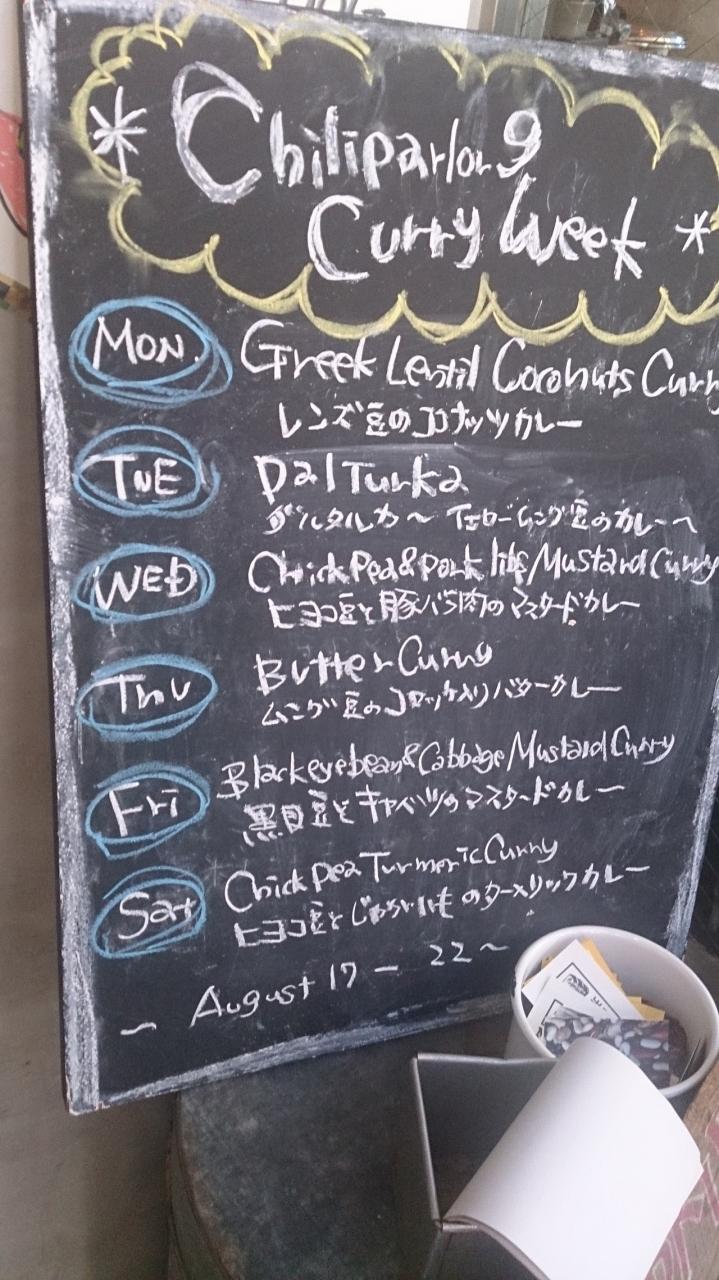 * Chiliparlor 9
Curry Week *
MON. Greek Lentil Coconuts Curry
レンズ豆のココナッツカレー
TUE Dal Turka
ダルタルカ〜イエロームング豆のカレー〜
WED ChickPea&Pork libs Mustard Curry
ヒヨコ豆と豚バラ肉のマスタードカレー
Thu Butter Curry
ムング豆のコロッケ入りバターカレー
Fri Blackeyebean&Cabbage Mustard Curry
黒目豆とキャベツのマスタードカレー
Sat Chick Pea Turmeric Curry
ヒヨコ豆とじゃがいものターメリックカレー
~ August 17 - 22 ~